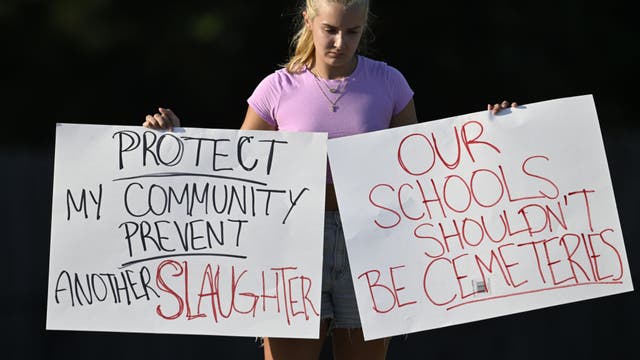 PROTECT
MY COMMUNITY
PREVENT
ANOTHER SLAUGHTER
OUR
SCHOOLS
SHOULDN'T
BE CEMETERIES